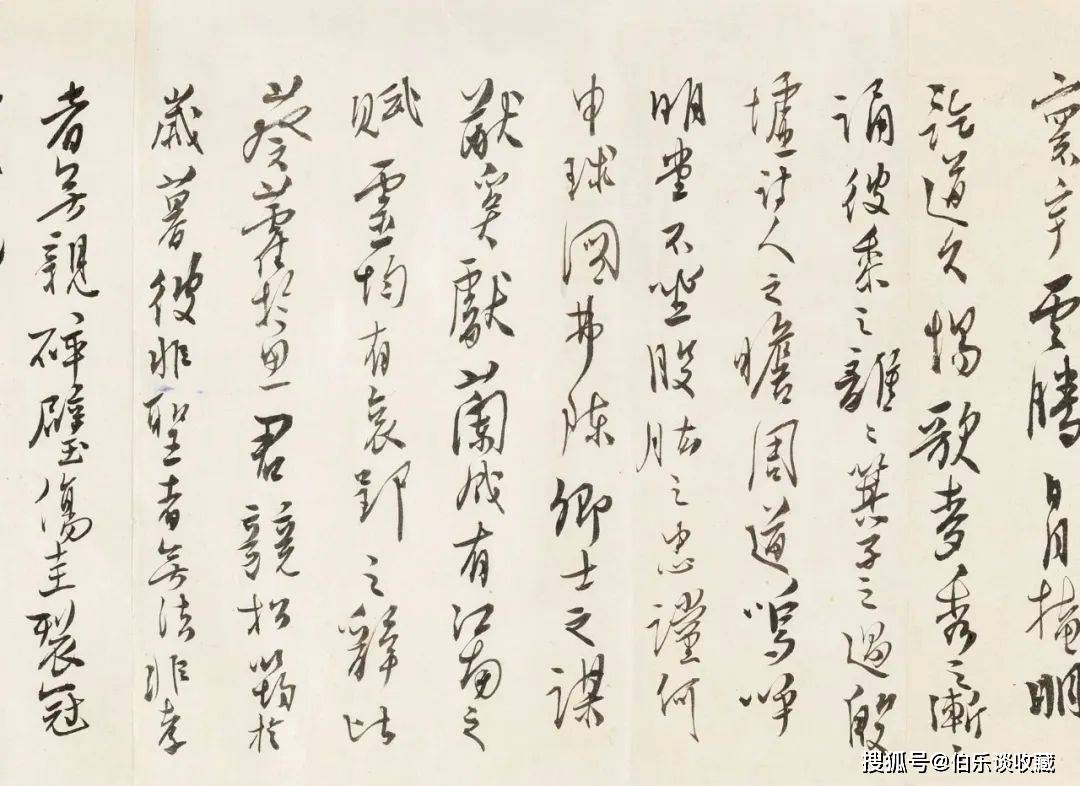 寰宇雲騰日月掩明
道久惕歌麥秀之漸〻
誦彼黍之離〻箕子之過殷
墟詩人之瞻周道嗚呼
明堂不坐股肱之忠謹何
申球圖弗陳卿士之謀
猷奚獻蘭成有江南之
賦靈均有哀郢之辭比
葵藿於思君競松筠於
歲暮彼非聖者無法非孝
者無親碎璧傷圭裂冠
搜狐号@伯乐谈收藏